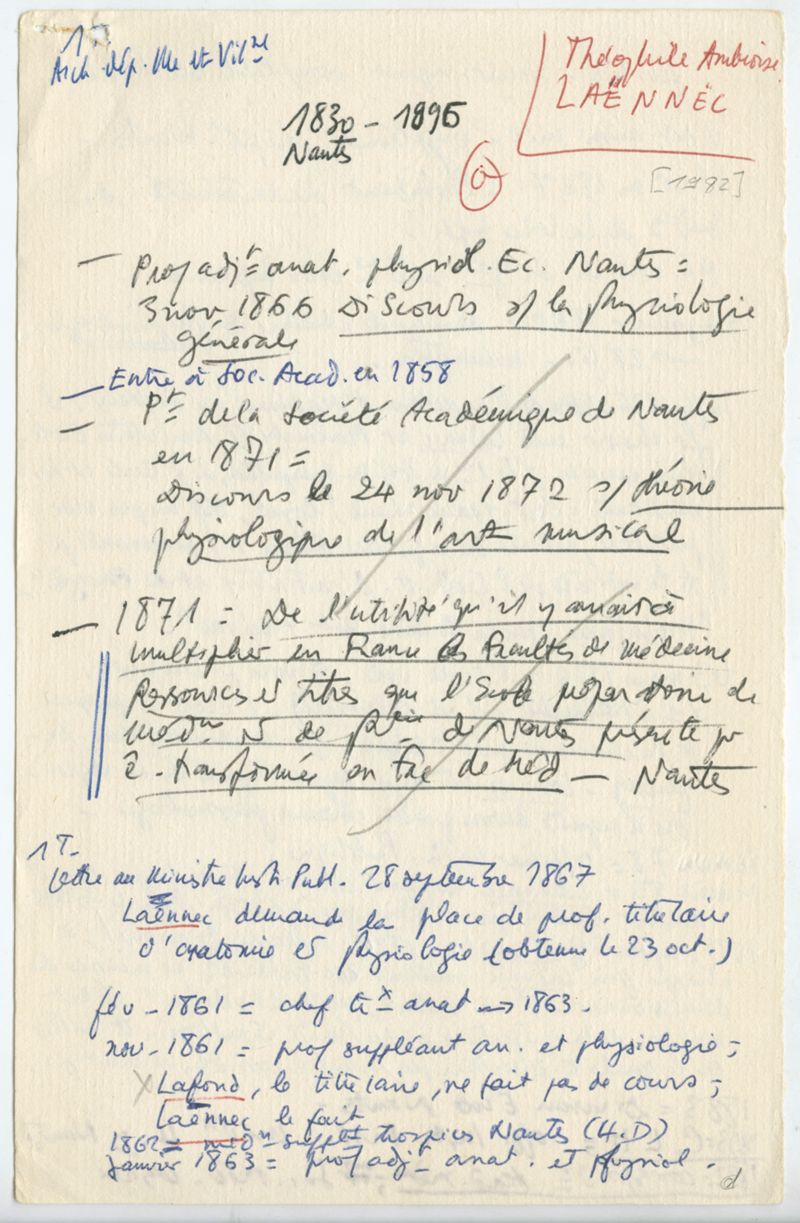 1T.
Arch. dép. Ille et Vilne
Théophile Ambroise
LAËNNEC
1830 - 1896
Nantes
[1982]
— Prof adjt anat. physiol. Ec. Nantes =
3 nov 1866 Discours s/ la physiologie
générale
— Entre à Soc. Acad. en 1858
— Pt de la Société Académique de Nantes
en 1871 =
Discours le 24 nov 1872 s/ théorie
physiologique de l'art musical
— 1871 = De l'utilité qu'il y aurait à
multiplier en France les Facultés de médecine
Ressources et titres que l'Ecole préparatoire de
médne et de phie de Nantes présente pr
ê. transformée en Fac de Méd — Nantes
1T.
Lettre au Ministre Inst. Publ. 28 septembre 1867
Laënnec demande la place de prof. titulaire
d'anatomie et physiologie (obtenue le 23 oct.)
fév - 1861 = chef tx anat → 1863.
nov - 1861 = prof suppléant an. et physiologie ;
x Lafond, le titulaire, ne fait pas de cours ;
Laënnec le fait
1862 = médn supplét hospices Nantes (H.D)
janvier 1863 = prof adjt anat. et physiol.
d